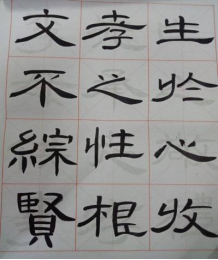 生於心收
孝之性根
文不綜賢